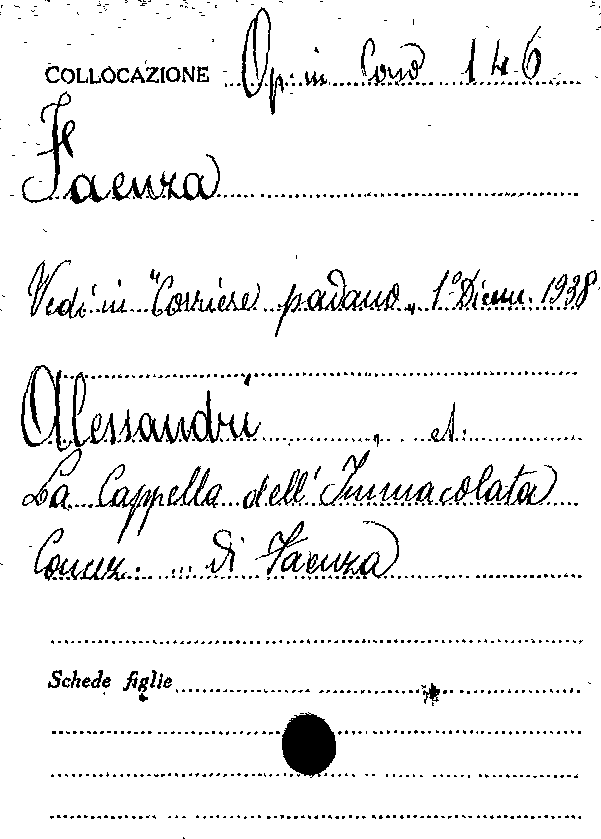 COLLOCAZIONE Op. in Corso 146
Faenza
Vedi in "Corriere padano„ 1° Dicem. 1938
Alessandri, A.
La Cappella dell'Immacolata
Concez. ... di Faenza
Schede figlie